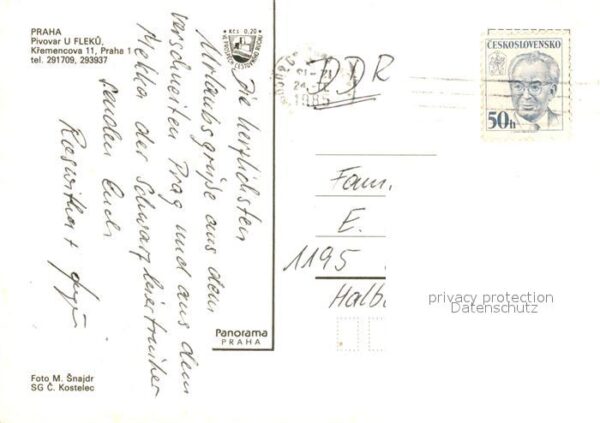 PRAHA
Pivovar U FLEKŮ,
Křemencova 11, Praha 1
tel. 291709, 293937
Kčs 0,20
Die herzlichsten
Urlaubsgrüße aus dem
verschneiten Prag und aus dem
Mekka der Schwarzbiertrinker
senden Euch
Roswitha +
DDR
24
1985
ČESKOSLOVENSKO
50h
Fam.
E.
1195
Halb
privacy protection
Datenschutz
Panorama
PRAHA
Foto M. Šnajdr
SG Č. Kostelec